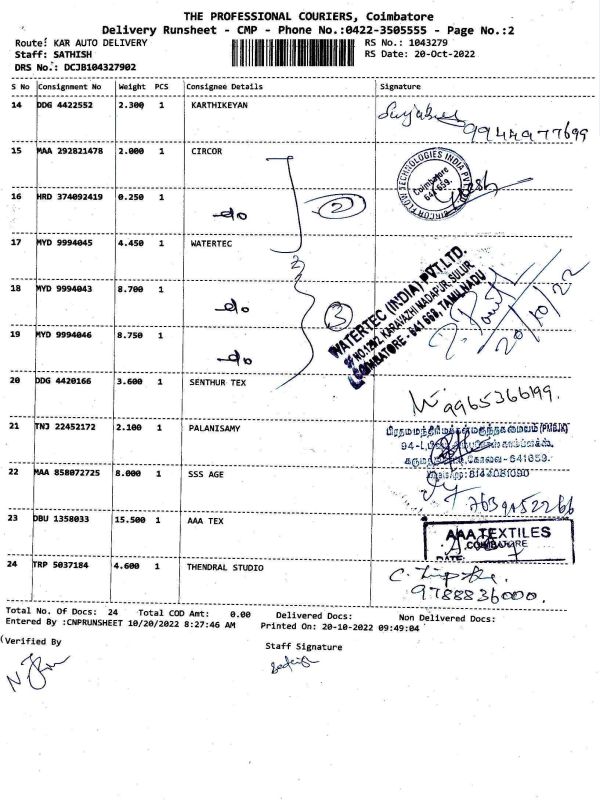 THE PROFESSIONAL COURIERS, Coimbatore
Delivery Runsheet - CMP - Phone No.:0422-3505555 - Page No.:2
Route: KAR AUTO DELIVERY RS No.: 1043279
Staff: SATHISH RS Date: 20-Oct-2022
DRS No.: DCJB104327902
S No Consignment No Weight PCS Consignee Details Signature
14 DDG 4422552 2.300 1 KARTHIKEYAN
9944977699
15 MAA 292821478 2.000 1 CIRCOR
CIRCOR FLOW TECHNOLOGIES INDIA PVT LTD
Coimbatore
641 659.
16 HRD 374092419 0.250 1
do 2
17 MYD 9994045 4.450 1 WATERTEC
18 MYD 9994043 8.700 1
do 3
WATERTEC (INDIA) PVT.LTD.
SF NO.1292, KARAVAZHI MADAPUR, SULUR
COIMBATORE - 641 668, TAMILNADU
20/10/22
19 MYD 9994046 8.750 1
do
20 DDG 4420166 3.600 1 SENTHUR TEX
9965366199.
21 TNJ 22452172 2.100 1 PALANISAMY
22 MAA 858072725 8.000 1 SSS AGE
7639452266
23 DBU 1358033 15.500 1 AAA TEX
AAA TEXTILES
COIMBATORE
DATE:
24 TRP 5037184 4.600 1 THENDRAL STUDIO
9788836000.
Total No. Of Docs: 24 Total COD Amt: 0.00 Delivered Docs: Non Delivered Docs:
Entered By :CNPRUNSHEET 10/20/2022 8:27:46 AM Printed On: 20-10-2022 09:49:04
(Verified By Staff Signature